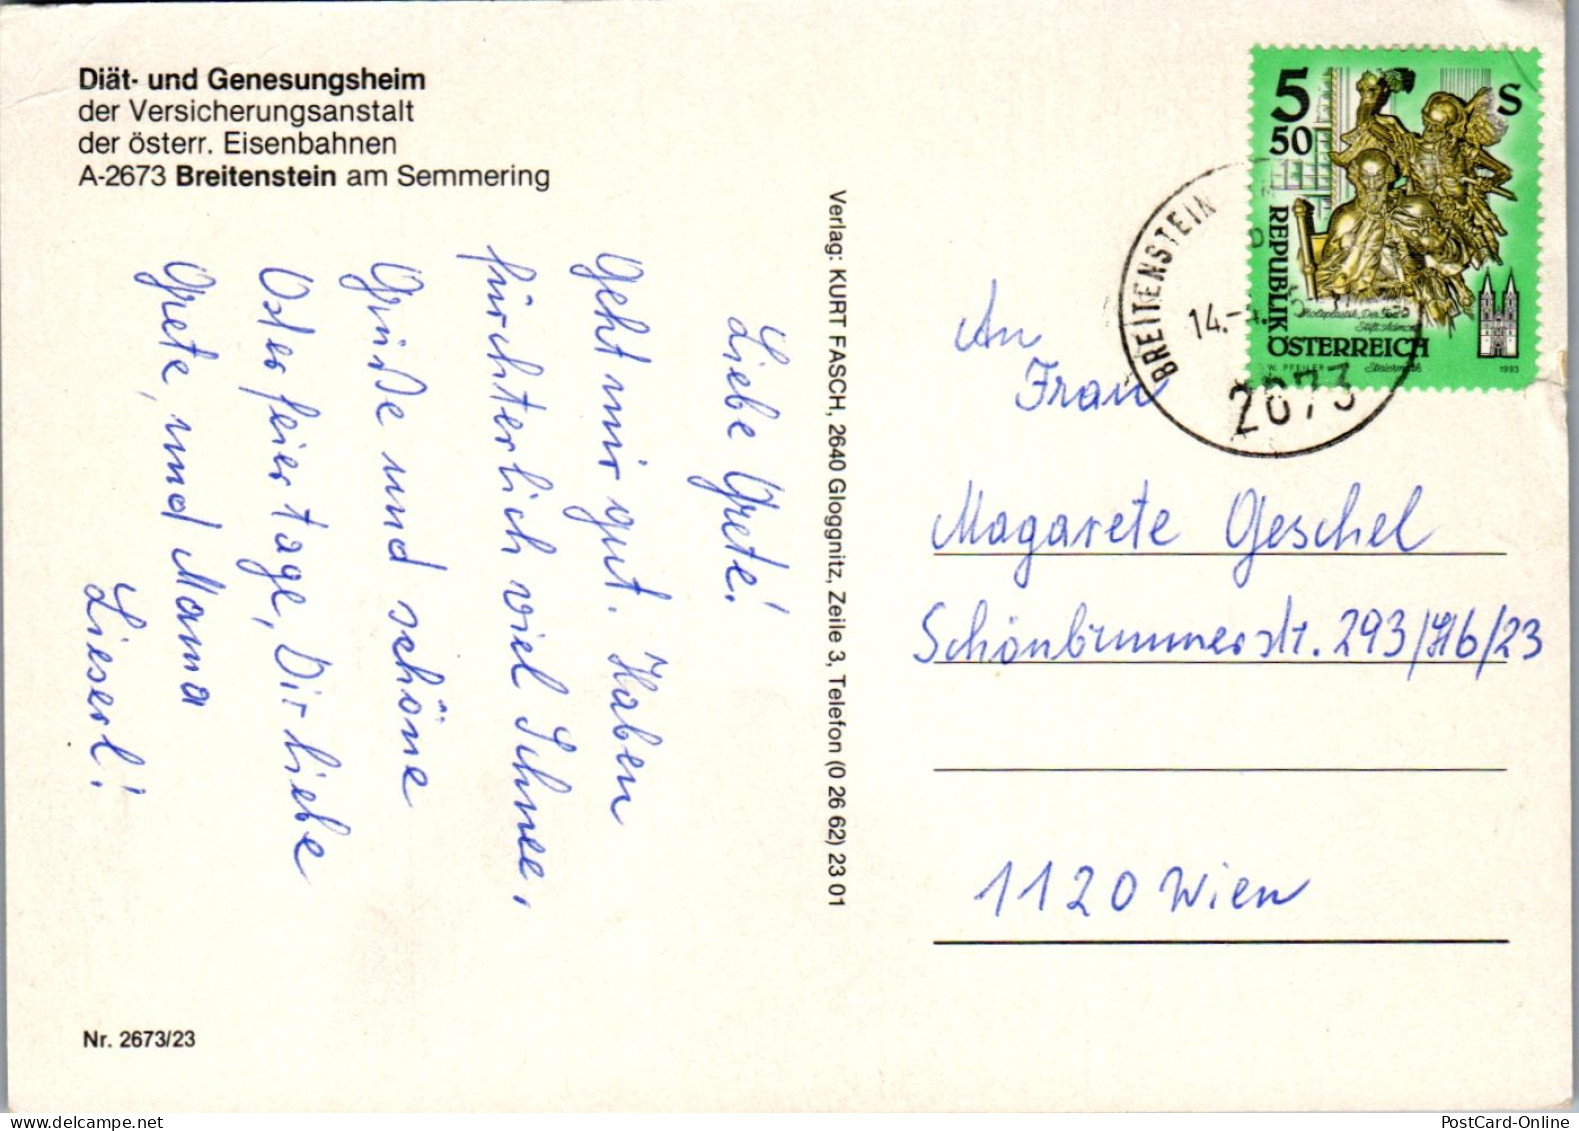 Diät- und Genesungsheim
der Versicherungsanstalt
der österr. Eisenbahnen
A-2673 Breitenstein am Semmering
Liebe Grete!
Geht mir gut. Haben
fürchterlich viel Schnee,
Grüße und schöne
Osterfeiertage, Dir liebe
Grete, und Mama
Lieserl!
Nr. 2673/23
Verlag: KURT FASCH, 2640 Gloggnitz, Zeile 3, Telefon (0 26 62) 23 01
5 S
50
REPUBLIK
ÖSTERREICH
Stift Admont
Steiermark
W. PFEILER
1993
BREITENSTEIN
14.-4.
2673
An
Frau
Magarete Geschel
Schönbrunnerstr. 293/
/23
1120 Wien
PostCard-Online
www.delcampe.net